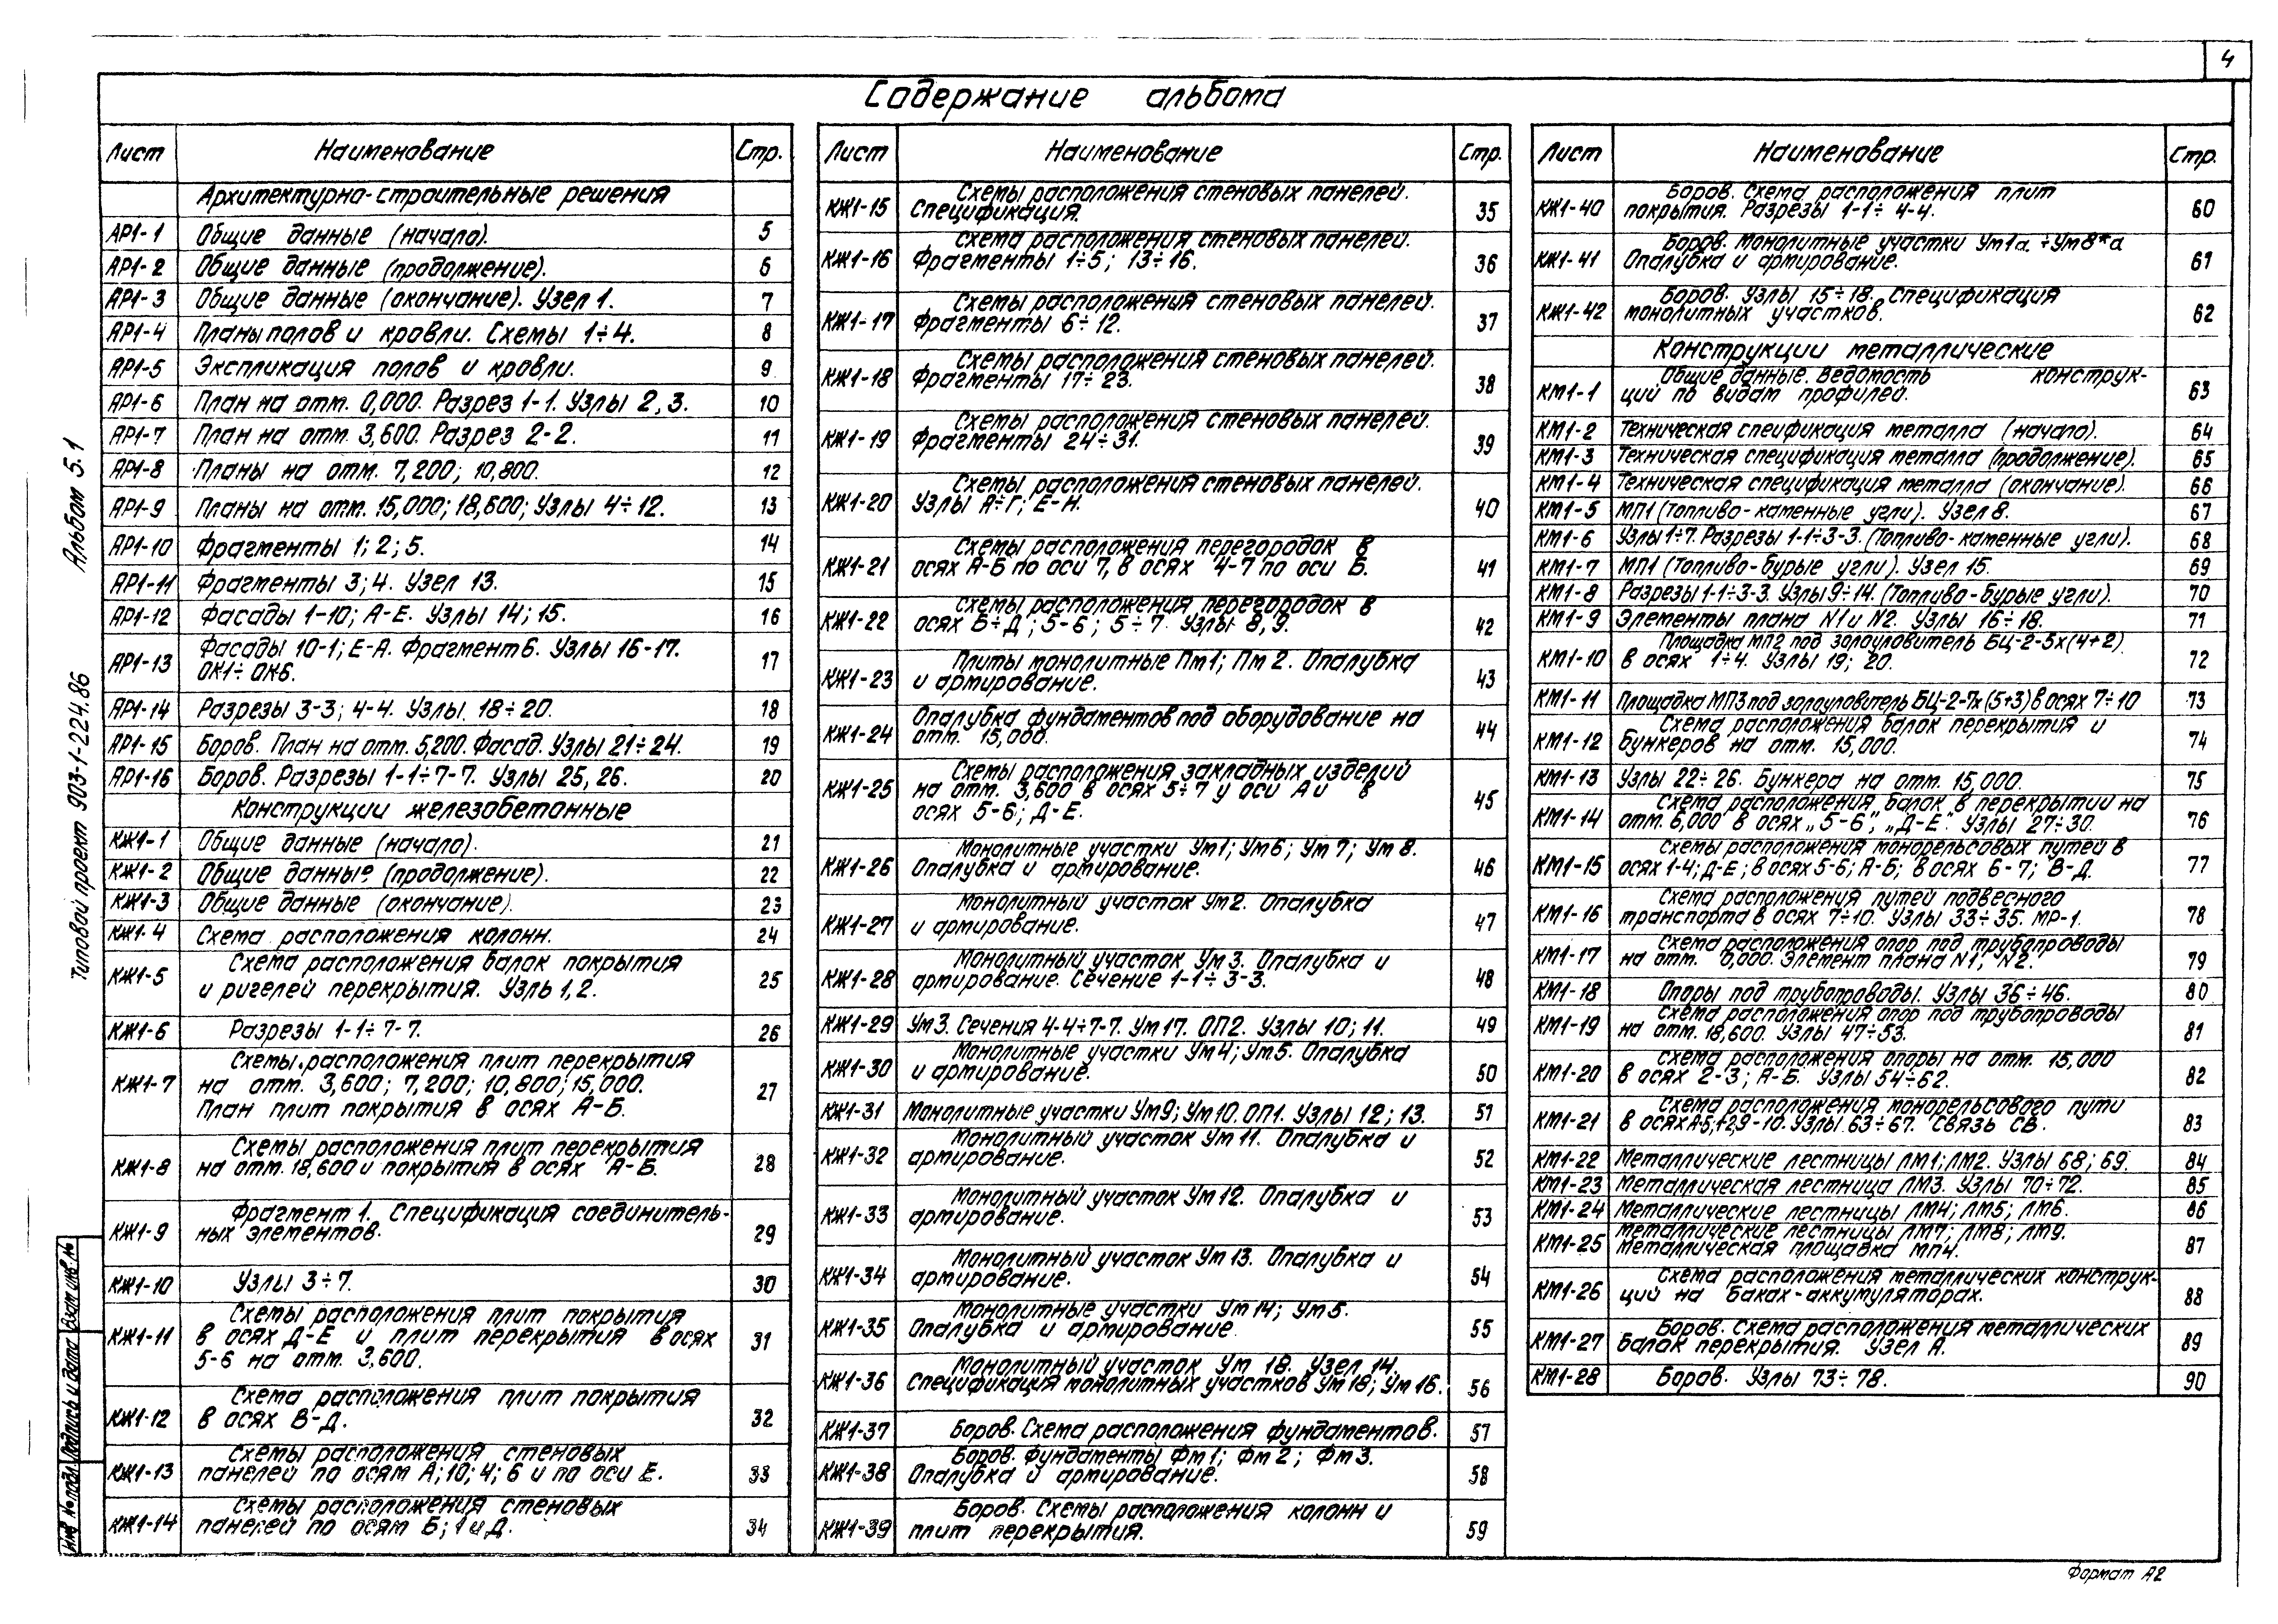 4
Содержание альбома
Лист Наименование Стр.
Архитектурно-строительные решения
АР1-1 Общие данные (начало). 5
АР1-2 Общие данные (продолжение). 6
АР1-3 Общие данные (окончание). Узел 1. 7
АР1-4 Планы полов и кровли. Схемы 1÷4. 8
АР1-5 Экспликация полов и кровли. 9
АР1-6 План на отм. 0,000. Разрез 1-1. Узлы 2,3. 10
АР1-7 План на отм. 3,600. Разрез 2-2. 11
АР1-8 Планы на отм. 7,200; 10,800. 12
АР1-9 Планы на отм. 15,000; 18,600; Узлы 4÷12. 13
АР1-10 Фрагменты 1; 2; 5. 14
АР1-11 Фрагменты 3; 4. Узел 13. 15
АР1-12 Фасады 1-10; А-Е. Узлы 14; 15. 16
АР1-13 Фасады 10-1; Е-А. Фрагмент 6. Узлы 16-17.
ОК1÷ОК6. 17
АР1-14 Разрезы 3-3; 4-4. Узлы. 18÷20. 18
АР1-15 Боров. План на отм. 5,200. Фасад. Узлы 21÷24. 19
АР1-16 Боров. Разрезы 1-1÷7-7. Узлы 25, 26. 20
Конструкции железобетонные
КЖ1-1 Общие данные (начало). 21
КЖ1-2 Общие данные (продолжение). 22
КЖ1-3 Общие данные (окончание). 23
КЖ1-4 Схема расположения колонн. 24
КЖ1-5 Схема расположения балок покрытия
и ригелей перекрытия. Узлы 1,2. 25
КЖ1-6 Разрезы 1-1÷7-7. 26
КЖ1-7 Схемы расположения плит перекрытия
на отм. 3,600; 7,200; 10,800; 15,000.
План плит покрытия в осях А-Б. 27
КЖ1-8 Схемы расположения плит перекрытия
на отм. 18,600 и покрытия в осях А-Б. 28
КЖ1-9 Фрагмент 1. Спецификация соединитель-
ных элементов. 29
КЖ1-10 Узлы 3÷7. 30
КЖ1-11 Схемы расположения плит покрытия
в осях Д-Е и плит перекрытия в осях
5-6 на отм. 3,600. 31
КЖ1-12 Схема расположения плит покрытия
в осях В-Д. 32
КЖ1-13 Схемы расположения стеновых
панелей по осям А; 10; 4; 6 и по оси Е. 33
КЖ1-14 Схемы расположения стеновых
панелей по осям Б; 1 и Д. 34
Лист Наименование Стр.
КЖ1-15 Схемы расположения стеновых панелей.
Спецификация. 35
КЖ1-16 Схема расположения стеновых панелей.
Фрагменты 1÷5; 13÷16. 36
КЖ1-17 Схемы расположения стеновых панелей.
Фрагменты 6÷12. 37
КЖ1-18 Схемы расположения стеновых панелей.
Фрагменты 17÷23. 38
КЖ1-19 Схемы расположения стеновых панелей.
Фрагменты 24÷31. 39
КЖ1-20 Схемы расположения стеновых панелей.
Узлы А÷Г; Е-Н. 40
КЖ1-21 Схемы расположения перегородок в
осях А-Б по оси 7, в осях 4-7 по оси Б. 41
КЖ1-22 Схемы расположения перегородок в
осях Б÷Д; 5-6; 5÷7. Узлы 8,9. 42
КЖ1-23 Плиты монолитные Пм1; Пм2. Опалубка
и армирование. 43
КЖ1-24 Опалубка фундаментов под оборудование на
отм. 15,000. 44
КЖ1-25 Схемы расположения закладных изделий
на отм. 3,600 в осях 5÷7 у оси А и в
осях 5-6; Д-Е. 45
КЖ1-26 Монолитные участки Ум1; Ум6; Ум7; Ум8.
Опалубка и армирование. 46
КЖ1-27 Монолитный участок Ум2. Опалубка
и армирование. 47
КЖ1-28 Монолитный участок Ум3. Опалубка и
армирование. Сечение 1-1÷3-3. 48
КЖ1-29 Ум3. Сечения 4-4÷7-7. Ум17. ОП2. Узлы 10; 11. 49
КЖ1-30 Монолитные участки Ум4; Ум5. Опалубка
и армирование. 50
КЖ1-31 Монолитные участки Ум9; Ум10. ОП1. Узлы 12; 13. 51
КЖ1-32 Монолитный участок Ум11. Опалубка и
армирование. 52
КЖ1-33 Монолитный участок Ум12. Опалубка и
армирование. 53
КЖ1-34 Монолитный участок Ум13. Опалубка и
армирование. 54
КЖ1-35 Монолитные участки Ум14; Ум5.
Опалубка и армирование. 55
КЖ1-36 Монолитный участок Ум 18. Узел 14.
Спецификация монолитных участков Ум18; Ум16. 56
КЖ1-37 Боров. Схема расположения фундаментов. 57
КЖ1-38 Боров. Фундаменты Фм1; Фм2; Фм3.
Опалубка и армирование. 58
КЖ1-39 Боров. Схемы расположения колонн и
плит перекрытия. 59
Лист Наименование Стр.
КЖ1-40 Боров. Схема расположения плит
покрытия. Разрезы 1-1÷4-4. 60
КЖ1-41 Боров. Монолитные участки Ум1а÷Ум8*а
Опалубка и армирование. 61
КЖ1-42 Боров. Узлы 15÷18. Спецификация
монолитных участков. 62
Конструкции металлические
КМ1-1 Общие данные. Ведомость конструк-
ций по видам профилей. 63
КМ1-2 Техническая спецификация металла (начало). 64
КМ1-3 Техническая спецификация металла (продолжение). 65
КМ1-4 Техническая спецификация металла (окончание). 66
КМ1-5 МП1 (Топливо-каменные угли). Узел 8. 67
КМ1-6 Узлы 1÷7. Разрезы 1-1÷3-3. (Топливо-каменные угли). 68
КМ1-7 МП1 (Топливо-бурые угли). Узел 15. 69
КМ1-8 Разрезы 1-1÷3-3. Узлы 9÷14. (Топливо-бурые угли). 70
КМ1-9 Элементы плана N1 и N2. Узлы 16÷18. 71
КМ1-10 Площадка МП2 под золоуловитель БЦ-2-5х(4+2)
в осях 1÷4. Узлы 19; 20. 72
КМ1-11 Площадка МП3 под золоуловитель БЦ-2-7х(5+3) в осях 7÷10 73
КМ1-12 Схема расположения балок перекрытия и
бункеров на отм. 15,000. 74
КМ1-13 Узлы 22÷26. Бункера на отм. 15,000. 75
КМ1-14 Схема расположения балок в перекрытии на
отм. 6,000 в осях „5-6", „Д-Е". Узлы 27÷30. 76
КМ1-15 Схемы расположения монорельсовых путей в
осях 1-4; Д-Е; в осях 5-6; А-Б; в осях 6-7; В-Д. 77
КМ1-16 Схема расположения путей подвесного
транспорта в осях 7÷10. Узлы 33÷35. МР-1. 78
КМ1-17 Схема расположения опор под трубопроводы
на отм. 0,000. Элемент плана N1, N2. 79
КМ1-18 Опоры под трубопроводы. Узлы 36÷46. 80
КМ1-19 Схема расположения опор под трубопроводы
на отм. 18,600. Узлы 47÷53. 81
КМ1-20 Схема расположения опоры на отм. 15,000
в осях 2-3; А-Б. Узлы 54÷62. 82
КМ1-21 Схема расположения монорельсового пути
в осях 9-10. Узлы 63÷67. Связь СВ. 83
КМ1-22 Металлические лестницы ЛМ1; ЛМ2. Узлы 68; 69. 84
КМ1-23 Металлическая лестница ЛМ3. Узлы 70÷72. 85
КМ1-24 Металлические лестницы ЛМ4; ЛМ5; ЛМ6. 86
КМ1-25 Металлические лестницы ЛМ7; ЛМ8; ЛМ9.
Металлическая площадка МП4. 87
КМ1-26 Схема расположения металлических конструк-
ций на баках-аккумуляторах. 88
КМ1-27 Боров. Схема расположения металлических
балок перекрытия. Узел А. 89
КМ1-28 Боров. Узлы 73÷78. 90
Типовой проект 903-1-224.86 Альбом 5.1
Инв № подл. Подпись и дата Взам инв. №
Формат А2